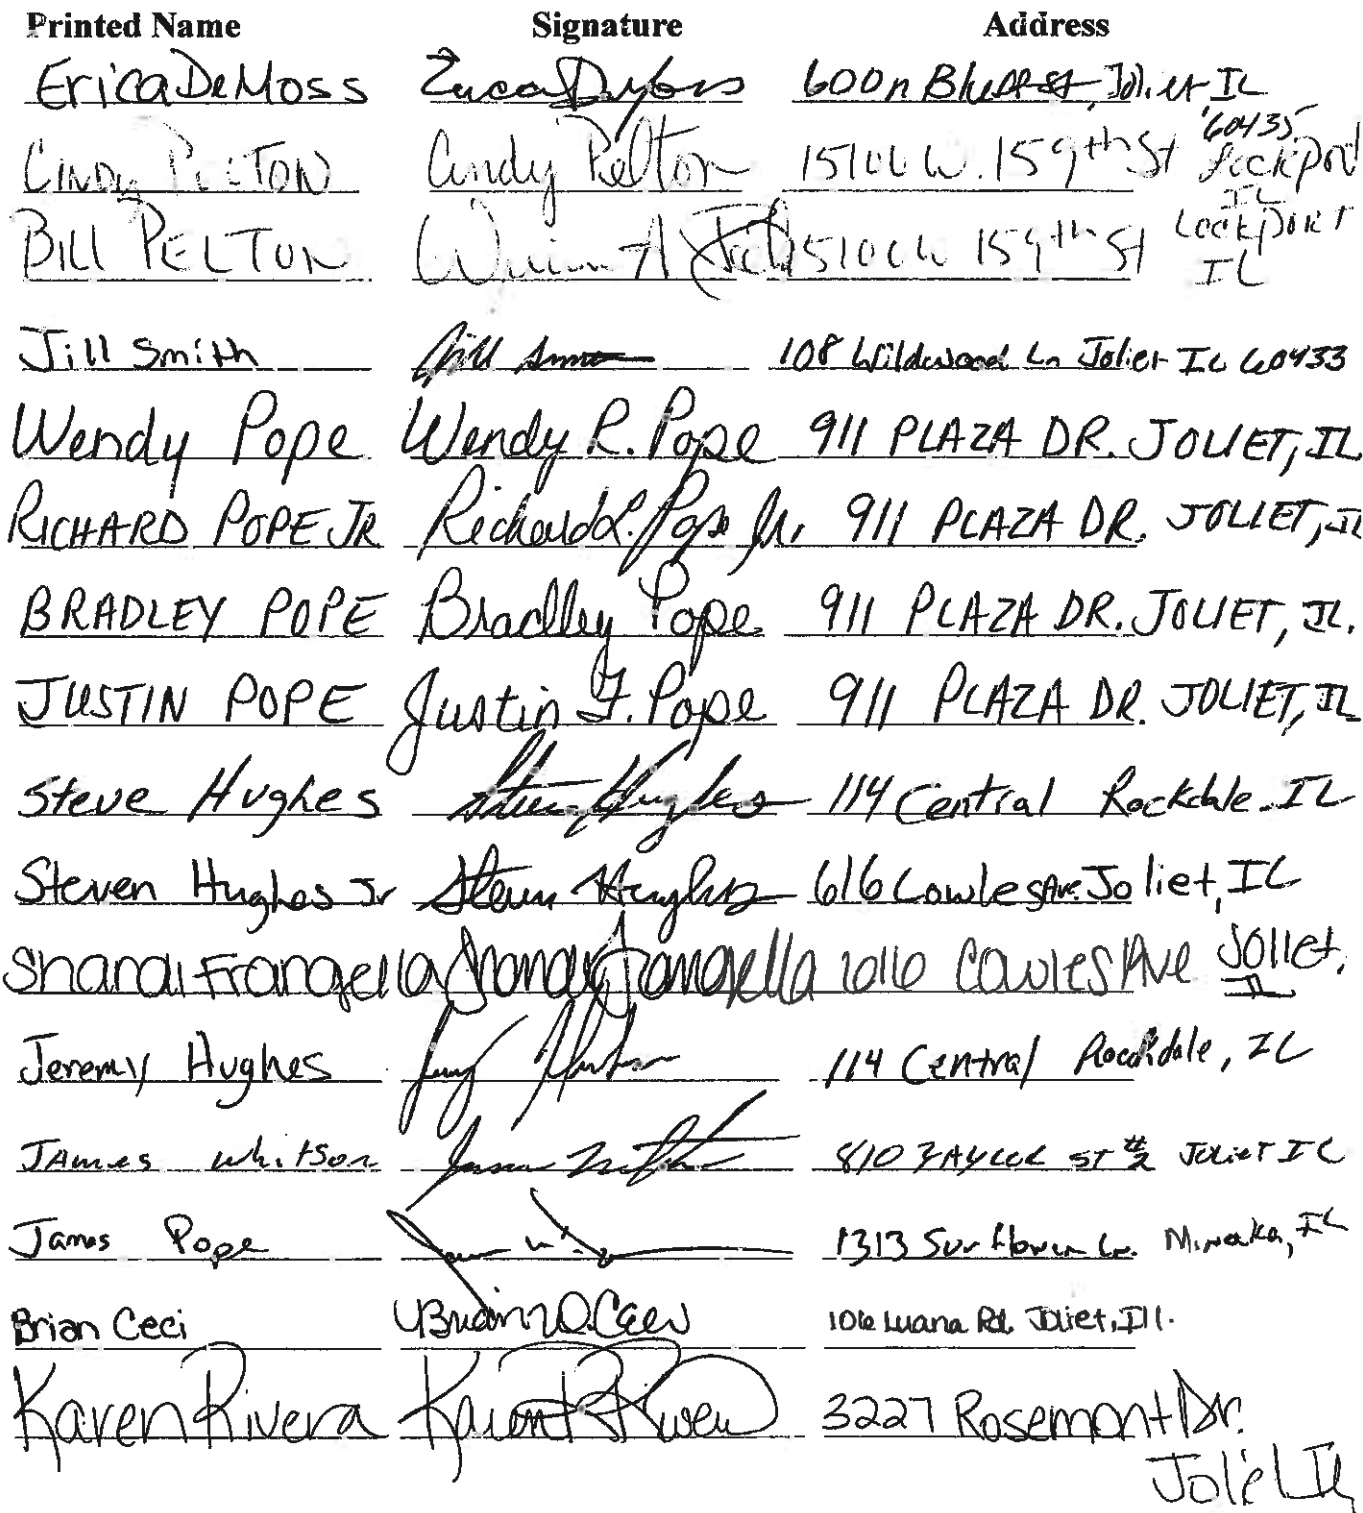 Printed Name Signature Address
Erica DeMoss 600 n Bluff st, Joliet IL
60435
Cindy Pelton Cindy Pelton 15106 W. 159th St Lockport
IL
Bill Pelton 15106 W 159th St Lockport
IL
Jill Smith Jill 108 Wildwood Ln Joliet IL 60433
Wendy Pope Wendy R. Pope 911 PLAZA DR. JOLIET, IL
RICHARD POPE JR Richard L. Pope Jr. 911 PLAZA DR. JOLIET, IL
BRADLEY POPE Bradley Pope 911 PLAZA DR. JOLIET, IL.
JUSTIN POPE Justin F. Pope 911 PLAZA DR. JOLIET, IL
Steve Hughes Steve Hughes 114 Central Rockdale. IL
Steven Hughes Jr Steven Hughes 616 Cowles Ave. Joliet, IL
Shandi Frangella Shandi Frangella 616 Cowles Ave Joliet,
IL
Jeremy Hughes 114 Central Rockdale, IL
James Whitson 810 St #2 Joliet IL
James Pope 1313 Sunflower Ln. Minooka, IL
Brian Ceci Brian D. Ceci 106 Luana Rd. Joliet, Ill.
Karen Rivera Karen Rivera 3227 Rosemont Dr.
Joliet IL